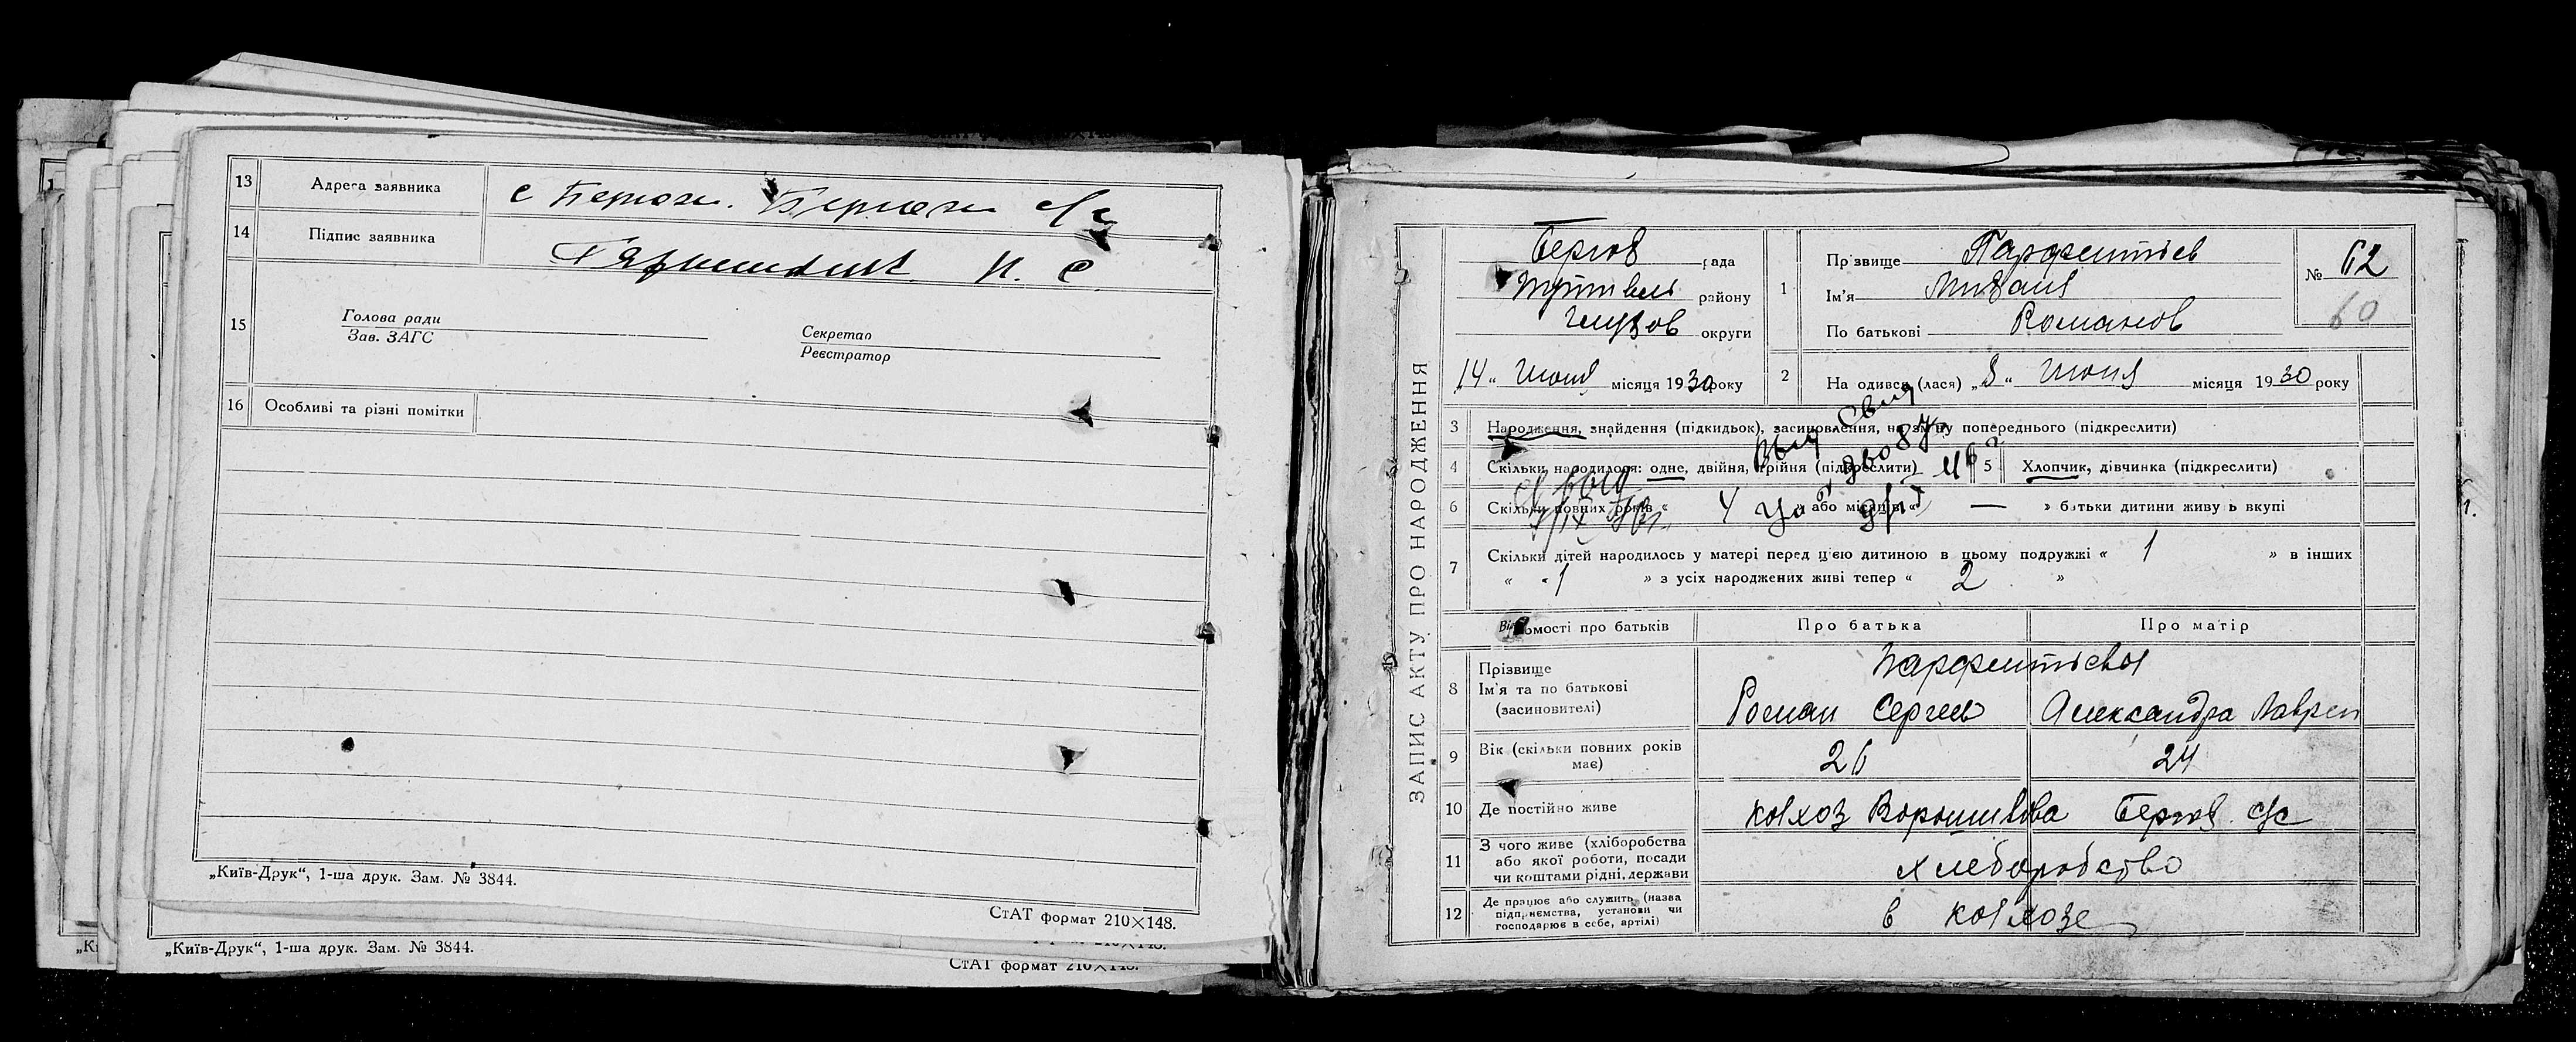 13 Адреса заявника с Берюх. Берюх с/с
14 Підпис заявника
15 Голова ради
Зав. ЗАГС
Секретар
Реєстратор
16 Особливі та різні помітки
„Київ-Друк“, 1-ша друк. Зам. № 3844.
СтАТ формат 210×148.
„Київ-Друк“, 1-ша друк. Зам. № 3844.
СтАТ формат 210×148.
ЗАПИС АКТУ ПРО НАРОДЖЕННЯ
Берюх рада
Путивль району
Глухов округи
14 „ Июня місяця 1930 року
1 Прізвище Парфентіев
Ім'я Михаил
По батькові Романов
№ 62
60
2 Народився (лася) „8“ Июня місяця 1930 року
3 Народження, знайдення (підкидьок), засиновлення, на зміну попереднього (підкреслити)
4 Скільки народилося: одне, двійня, трійня (підкреслити)
5 Хлопчик, дівчинка (підкреслити)
6 Скільки повних років « 4 або місяців « — » батьки дитини живуть вкупі
7 Скільки дітей народилось у матері перед цією дитиною в цьому подружжі « 1 » в інших
« 1 » з усіх народжених живі тепер « 2 »
Відомості про батьків Про батька Про матір
8 Прізвище Парфентіевы
Ім'я та по батькові
(засиновителі) Роман Сергеев Александра Лаврен
9 Вік (скільки повних років має) 26 24
10 Де постійно живе колхоз Ворошилова Берюх. с/с
11 З чого живе (хліборобства
або якої роботи, посади
чи коштами рідні, держави хлеборобство
12 Де працює або служить (назва
підприємства, установи чи
господарює в себе, артілі) в колхозе